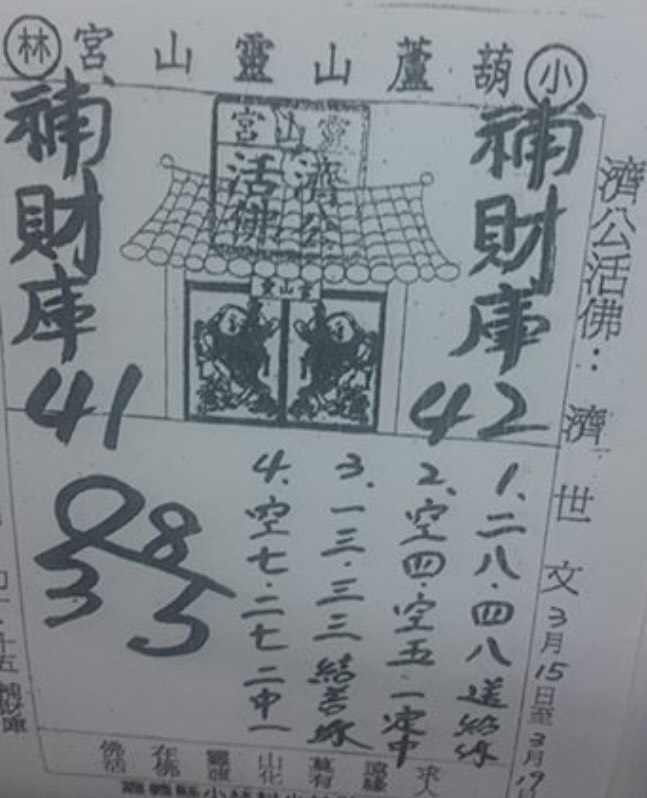 小
葫蘆山靈山宮
林
濟公活佛：濟世文3月15日至3月19日
補財庫
42
補財庫
41
靈山宮
濟公
活佛
靈山宮
1、二八．四八送好緣
2、空四．空五．一定中
3、一三．三三結善緣
4、空七．二七二中一
08
35
求人
遠緣
山化
在佛
佛活